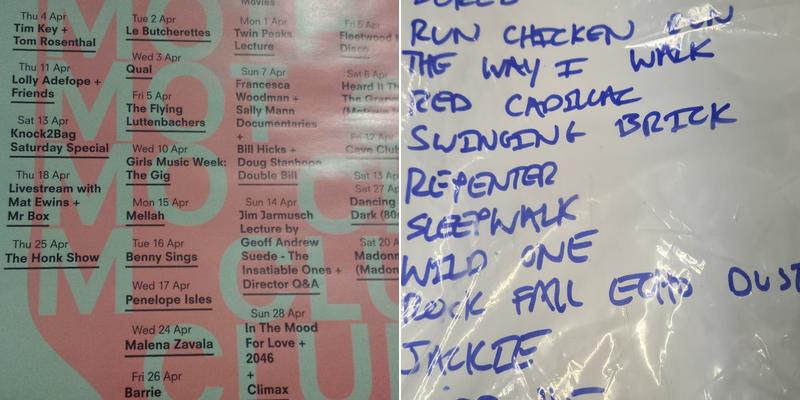 MOTH CLUB
Thu 4 Apr
Tim Key +
Tom Rosenthal
Thu 11 Apr
Lolly Adefope +
Friends
Sat 13 Apr
Knock2Bag
Saturday Special
Thu 18 Apr
Livestream with
Mat Ewins +
Mr Box
Thu 25 Apr
The Honk Show
Tue 2 Apr
Le Butcherettes
Wed 3 Apr
Qual
Fri 5 Apr
The Flying
Luttenbachers
Wed 10 Apr
Girls Music Week:
The Gig
Mon 15 Apr
Mellah
Tue 16 Apr
Benny Sings
Wed 17 Apr
Penelope Isles
Wed 24 Apr
Malena Zavala
Fri 26 Apr
Barrie
Movies
Mon 1 Apr
Twin Peaks
Lecture
Sun 7 Apr
Francesca
Woodman +
Sally Mann
Documentaries
+
Bill Hicks +
Doug Stanhope
Double Bill
Sun 14 Apr
Jim Jarmusch
Lecture by
Geoff Andrew
Suede - The
Insatiable Ones +
Director Q&A
Sun 28 Apr
In The Mood
For Love +
2046
+
Climax
Fri 5 Apr
Fleetwood
Disco
Sat 6 Apr
Heard It Th
The Grap
Fri 12 Apr
Cave Club
Sat 13 Apr
Sat 27 Ap
Dancing
Dark (80s
Sat 20 A
Madonn
(Madon
RUN CHICKEN RUN
THE WAY I WALK
RED CADILLAC
SWINGING BRICK
REPENTER
SLEEPWALK
WILD ONE
ROCK FALL ECHO DUST
JACKIE